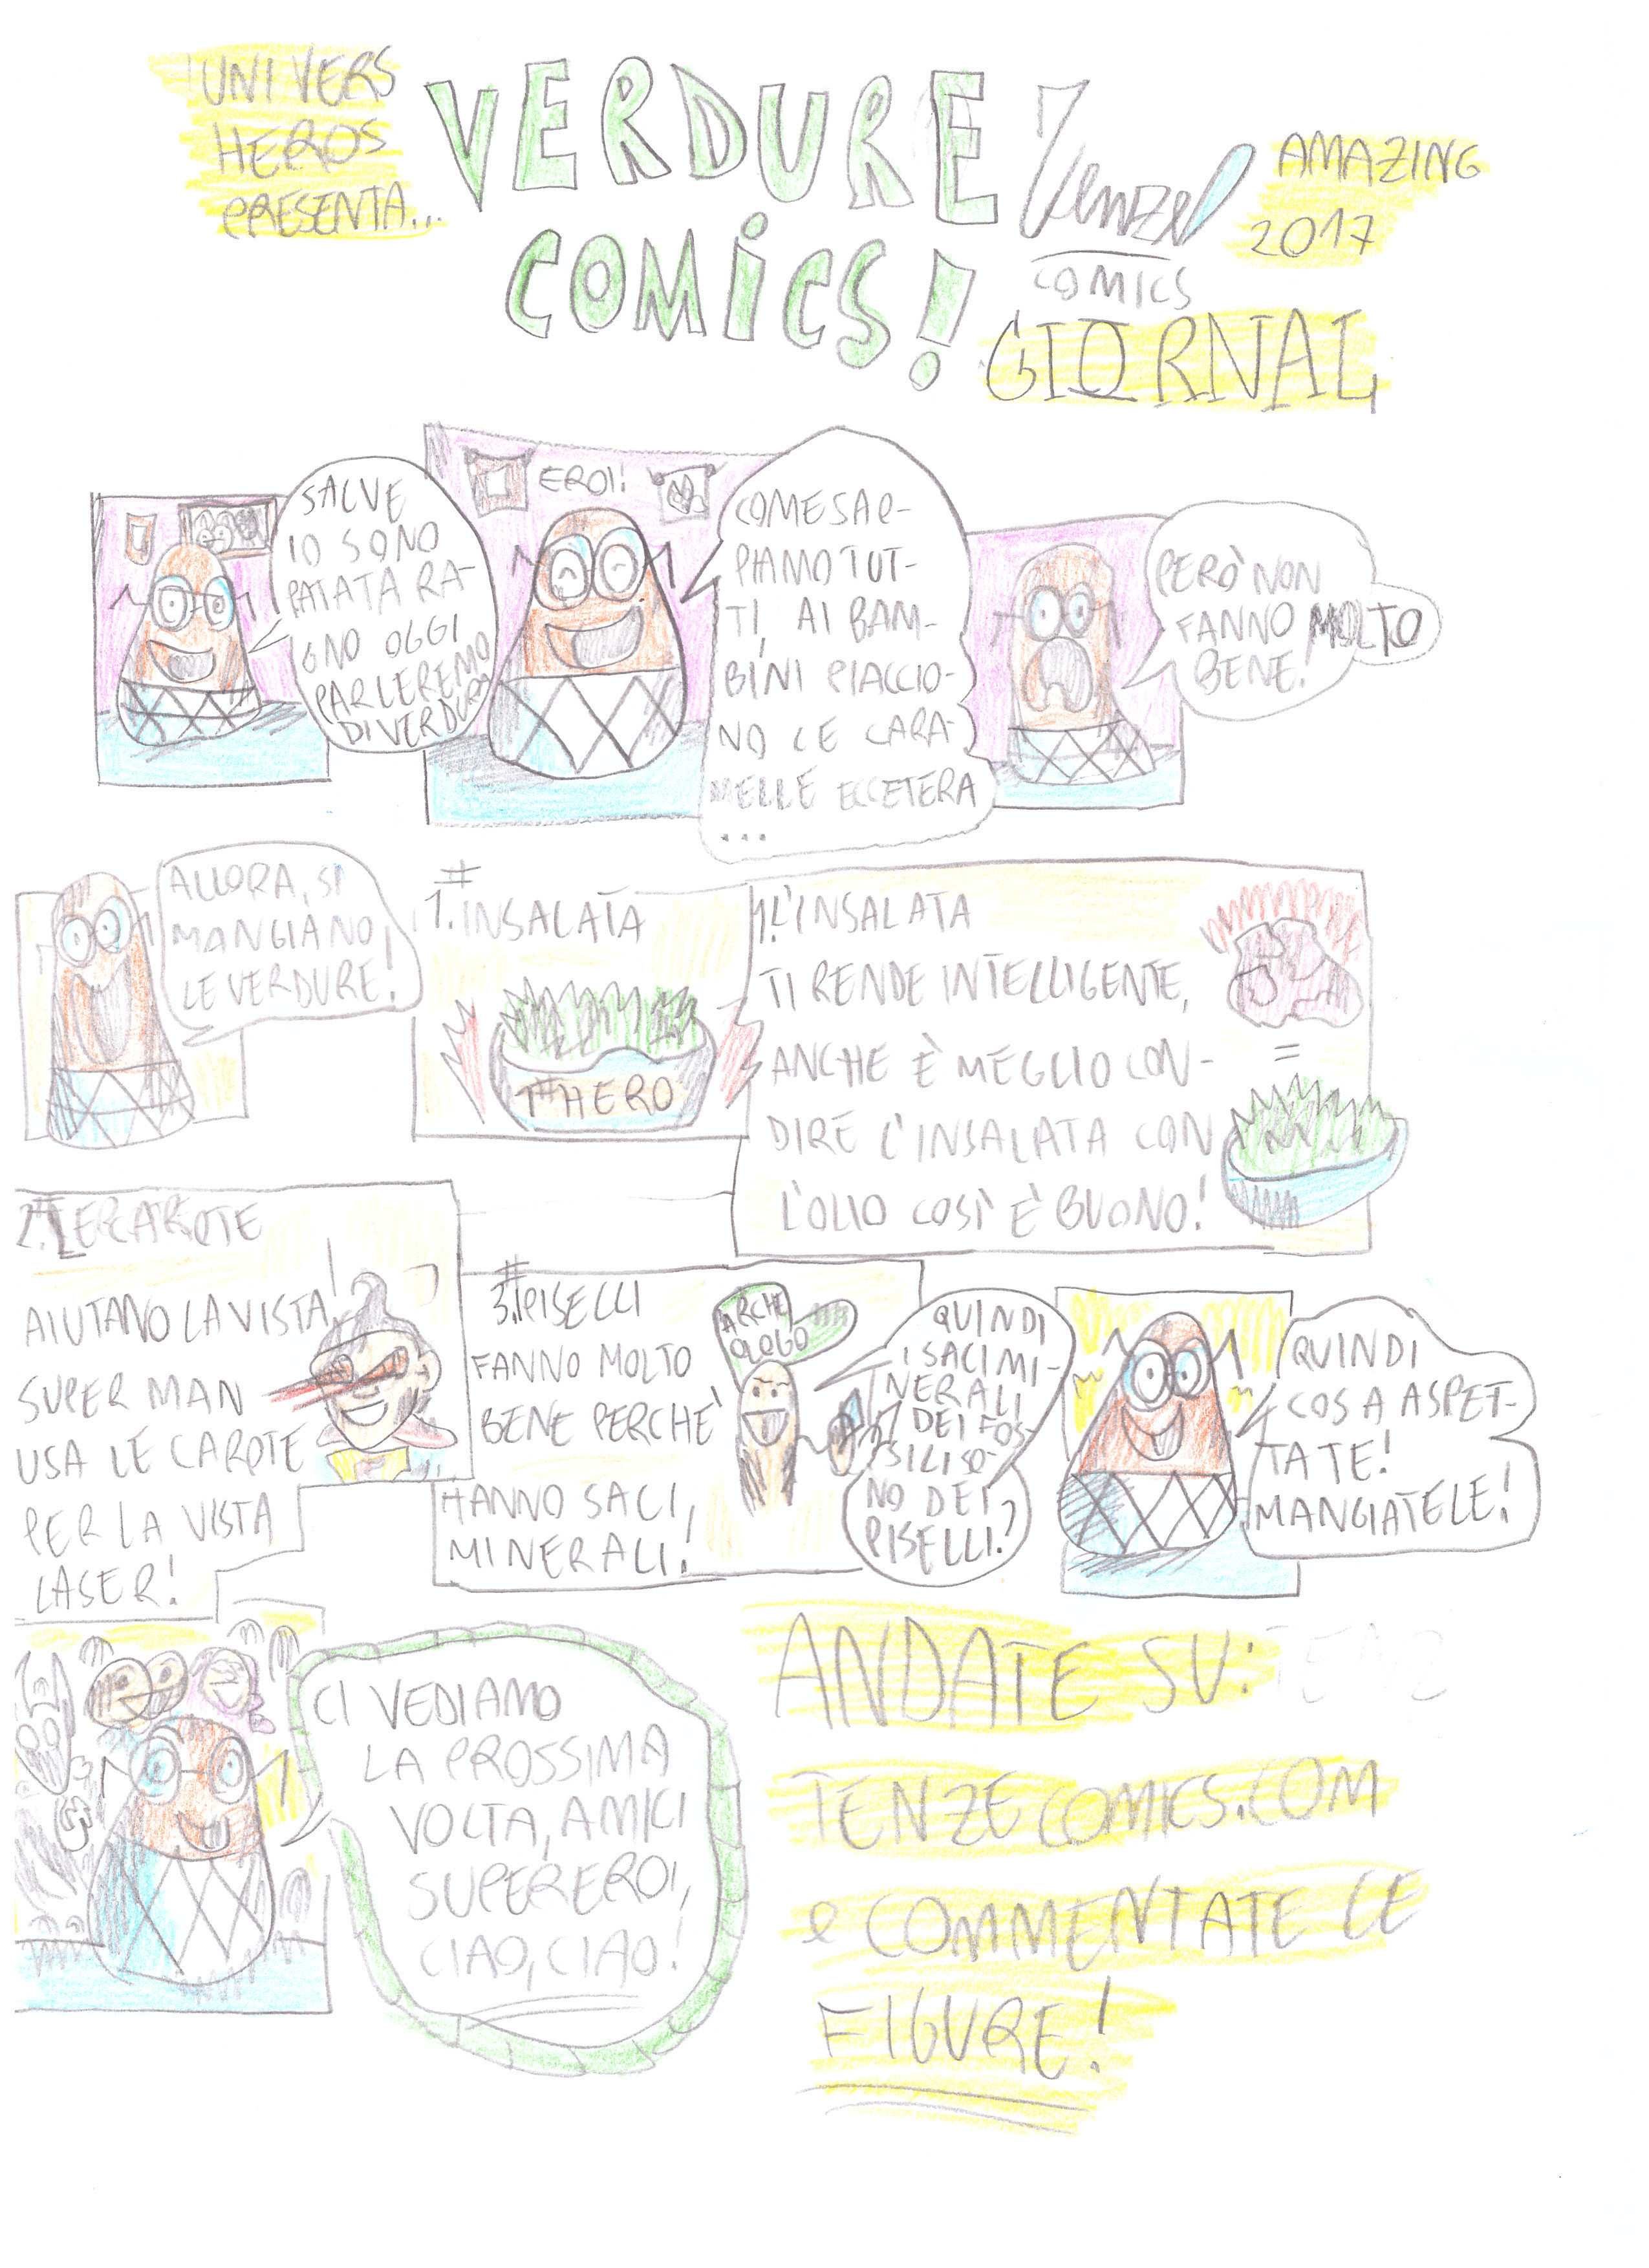 UNIVERS
HEROS
PRESENTA...
VERDURE
COMICS!
Tenze
COMICS
GIORNAL
AMAZING
2017
SALVE
IO SONO
PATATA RA-
GNO OGGI
PARLEREMO
DI VERDURA
EROI!
COME SAP-
PIAMO TUT-
TI, AI BAM-
BINI PIACCIO-
NO LE CARA-
MELLE ECCETERA
...
PERÒ NON
FANNO MOLTO
BENE!
ALLORA, SI
MANGIANO
LE VERDURE!
#
1. INSALATA
1# HERO
1. L'INSALATA
TI RENDE INTELLIGENTE,
ANCHE È MEGLIO CON-
DIRE L'INSALATA CON
L'OLIO COSÌ È BUONO!
=
#
2. LE CAROTE
AIUTANO LA VISTA!
SUPER MAN
USA LE CAROTE
PER LA VISTA
LASER!
#
3. PISELLI
FANNO MOLTO
BENE PERCHÈ
HANNO SALI,
MINERALI!
ARCHE
OLOGO
QUINDI
I SALI MI-
NERALI
DEI FOS-
SILI SO-
NO DEI
PISELLI?
QUINDI
COSA ASPET-
TATE!
MANGIATELE!
CI VEDIAMO
LA PROSSIMA
VOLTA, AMICI
SUPEREROI,
CIAO, CIAO!
ANDATE SU:
TENZECOMICS.COM
e COMMENTATE LE
FIGURE!